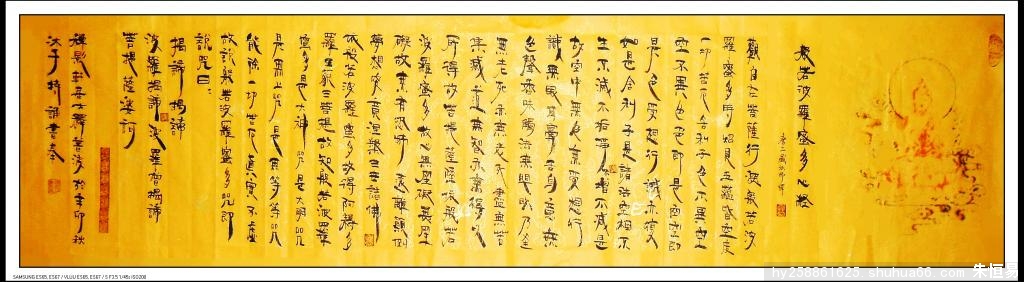 般若波羅蜜多心經
唐三藏法師譯
觀自在菩薩行深般若波
羅蜜多時照見五蘊皆空度
一切苦厄舍利子色不異空
空不異色色即是空空即
是色受想行識亦復
如是舍利子是諸法空相不
生不滅不垢不淨不增不減是
故空中無色無受想行
識無眼耳鼻舌身意無
色聲香味觸法無眼界乃至
無老死亦無老死盡無苦
集滅道無智亦無得以
所得故菩提薩埵依般若
波羅蜜多故心無罣礙無罣
礙故無有恐怖遠離顛倒
夢想究竟涅槃三世諸佛
依般若波羅蜜多故得阿耨多
羅三藐三菩提故知般若波羅
蜜多是大神咒是大明咒
是無上咒是無等等咒
能除一切苦厄真實不虛
故說般若波羅蜜多咒即
說咒曰：
揭諦揭諦
波羅揭諦波羅僧揭諦
菩提薩婆訶
於辛卯秋
沐手持誦書奉
SAMSUNG ES65, ES67 / VLUU ES65, ES67 / S F3.5 1/45s ISO200
hy258861625 shuhua66.com 朱恒易